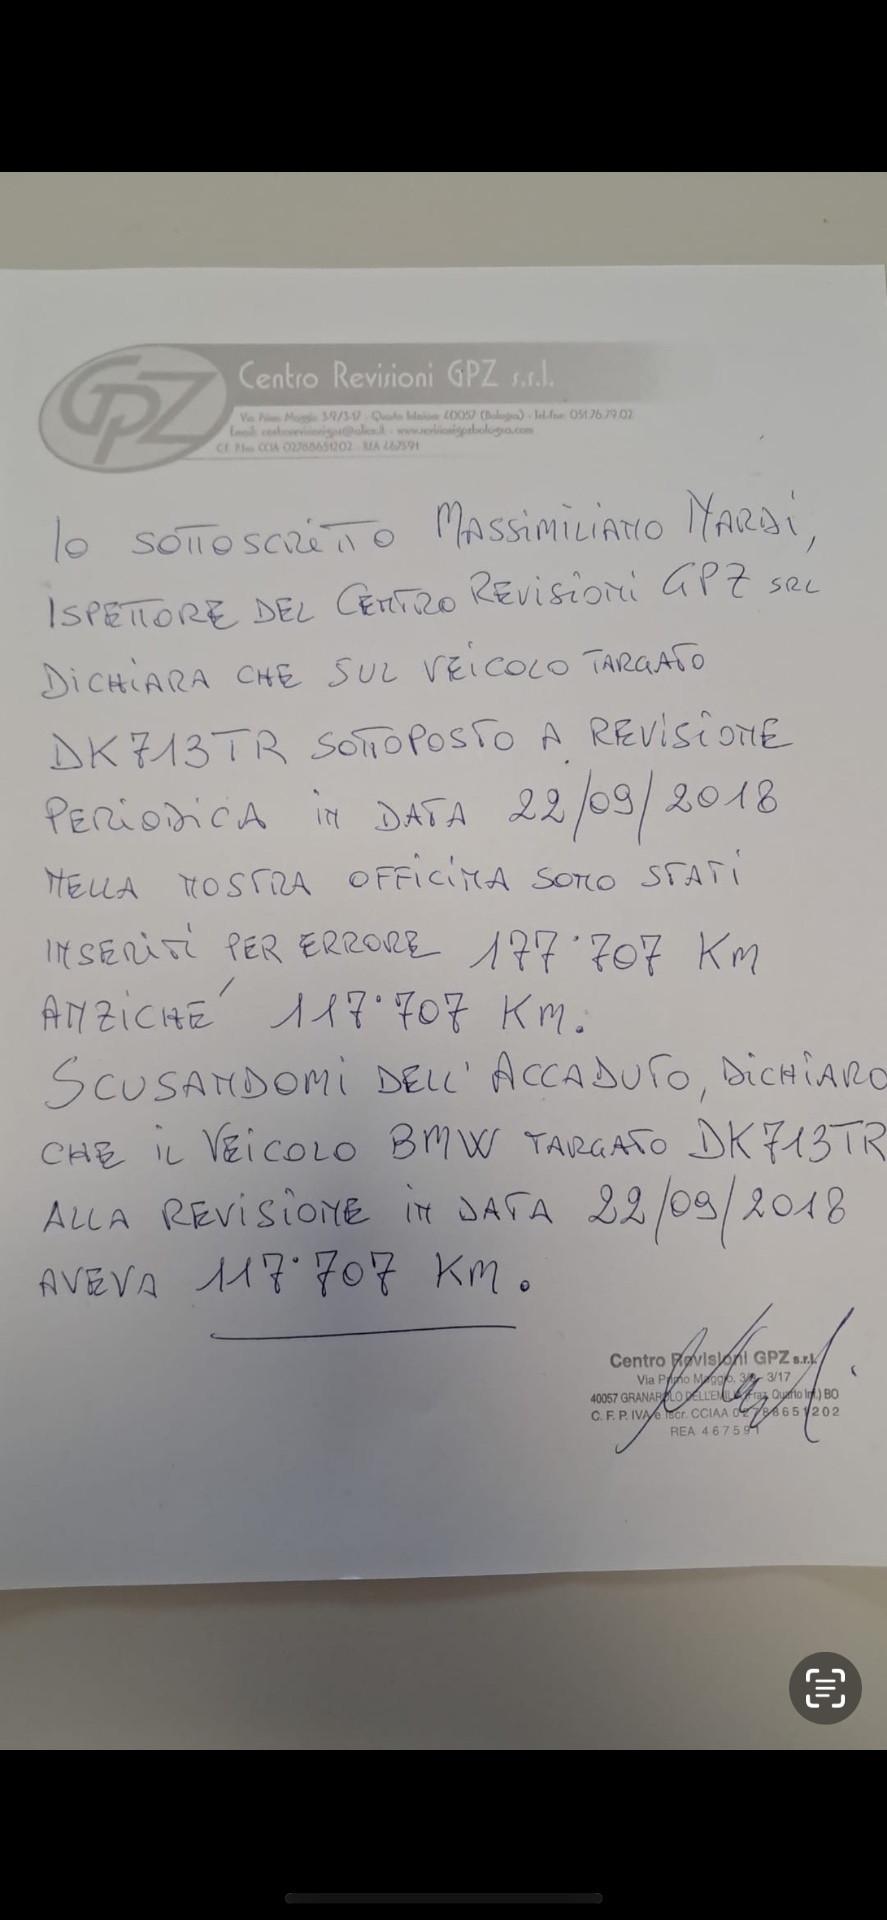 GPZ
Centro Revisioni GPZ s.r.l.
Via Primo Maggio 3/9/3-17 - Quarto Inferiore 40057 (Bologna) - tel.fax: 051.76.79.02
Email: - www.revisionigpzbologna.com
C.F. P.Iva CCIA 02788651202 - REA 467591
IO SOTTOSCRITTO MASSIMILIANO NARDI,
ISPETTORE DEL CENTRO REVISIONI GPZ SRL
DICHIARA CHE SUL VEICOLO TARGATO
DK713TR SOTTOPOSTO A REVISIONE
PERIODICA IN DATA 22/09/2018
NELLA NOSTRA OFFICINA SONO STATI
INSERITI PER ERRORE 177·707 KM
ANZICHE' 117·707 KM.
SCUSANDOMI DELL'ACCADUTO, DICHIARO
CHE IL VEICOLO BMW TARGATO DK713TR
ALLA REVISIONE IN DATA 22/09/2018
AVEVA 117·707 KM.
Centro Revisioni GPZ s.r.l.
Via Primo Maggio, 3/9 - 3/17
40057 GRANAROLO DELL'EMILIA (Fraz. Quarto Inf.) BO
C. F. P. IVA e Iscr. CCIAA 02788651202
REA 467591